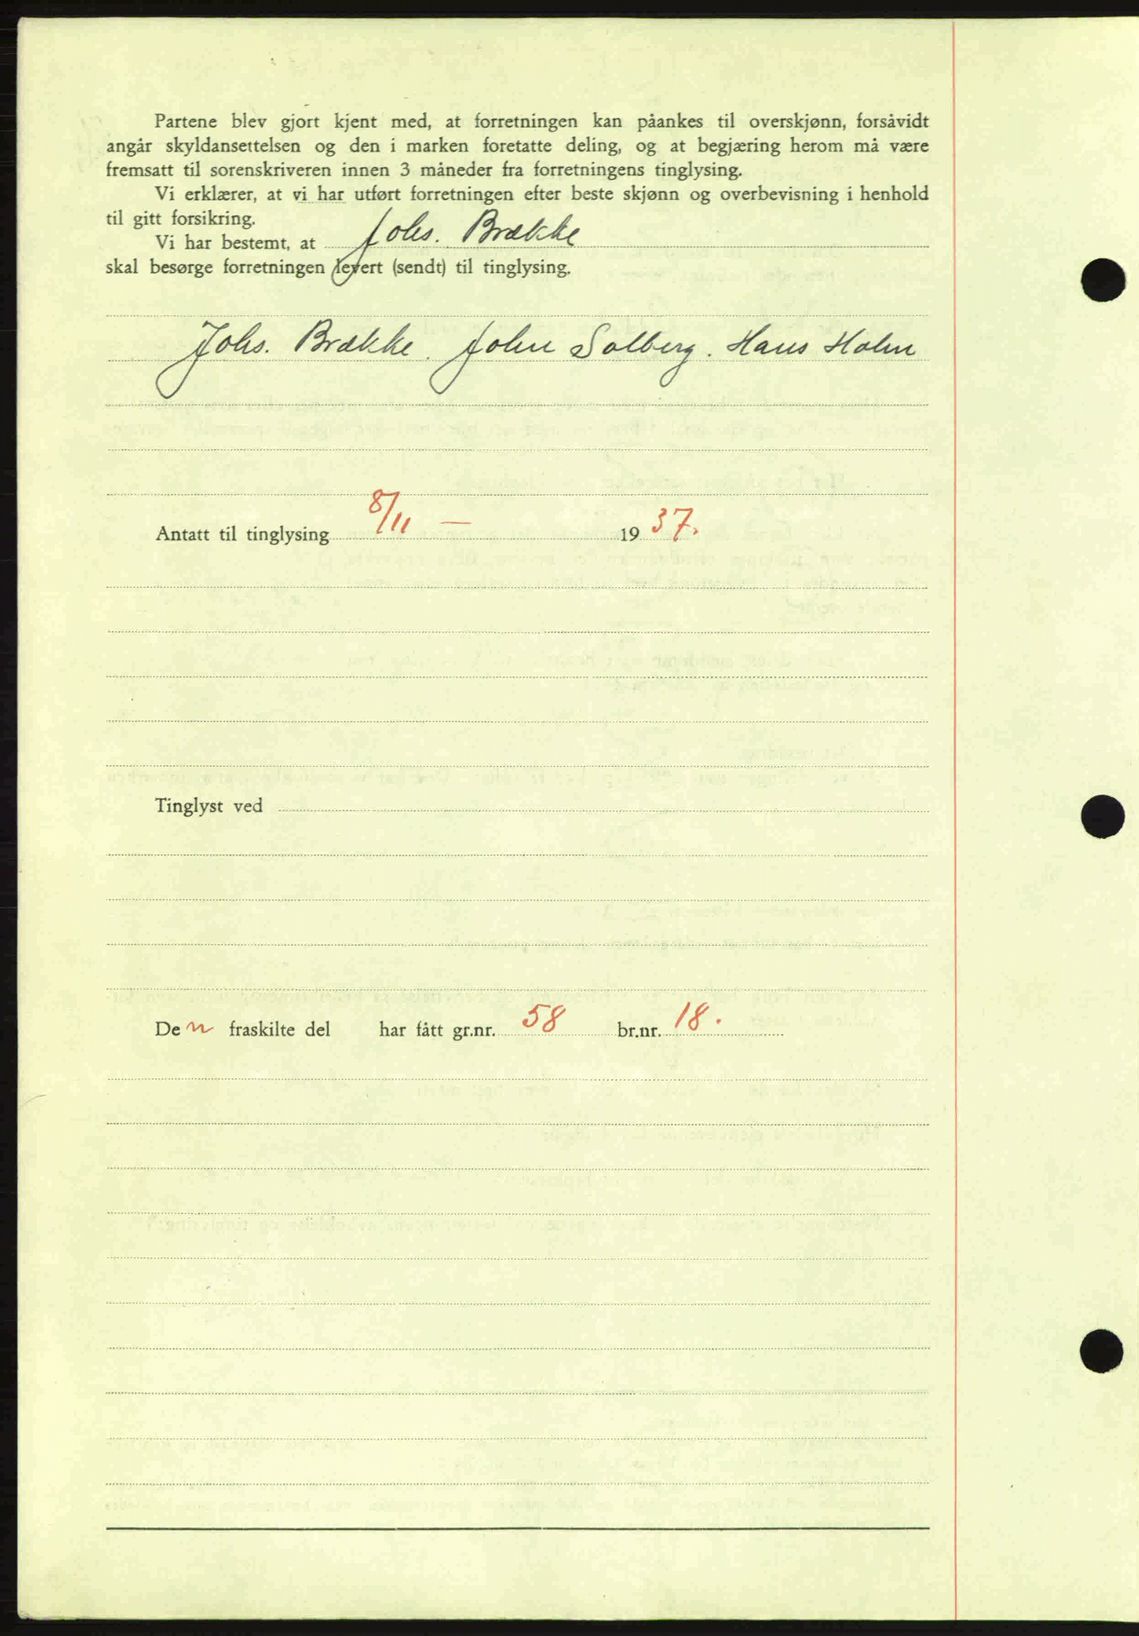 Partene blev gjort kjent med, at forretningen kan påankes til overskjønn, forsåvidt
angår skyldansettelsen og den i marken foretatte deling, og at begjæring herom må være
fremsatt til sorenskriveren innen 3 måneder fra forretningens tinglysing.
Vi erklærer, at vi har utført forretningen efter beste skjønn og overbevisning i henhold
til gitt forsikring.
Vi har bestemt, at Johs. Brække
skal besørge forretningen levert (sendt) til tinglysing.
Johs. Brække. John Solberg. Hans Holm
Antatt til tinglysing 8/11 — 1937.
Tinglyst ved
Den fraskilte del har fått gr.nr. 58 br.nr. 18.